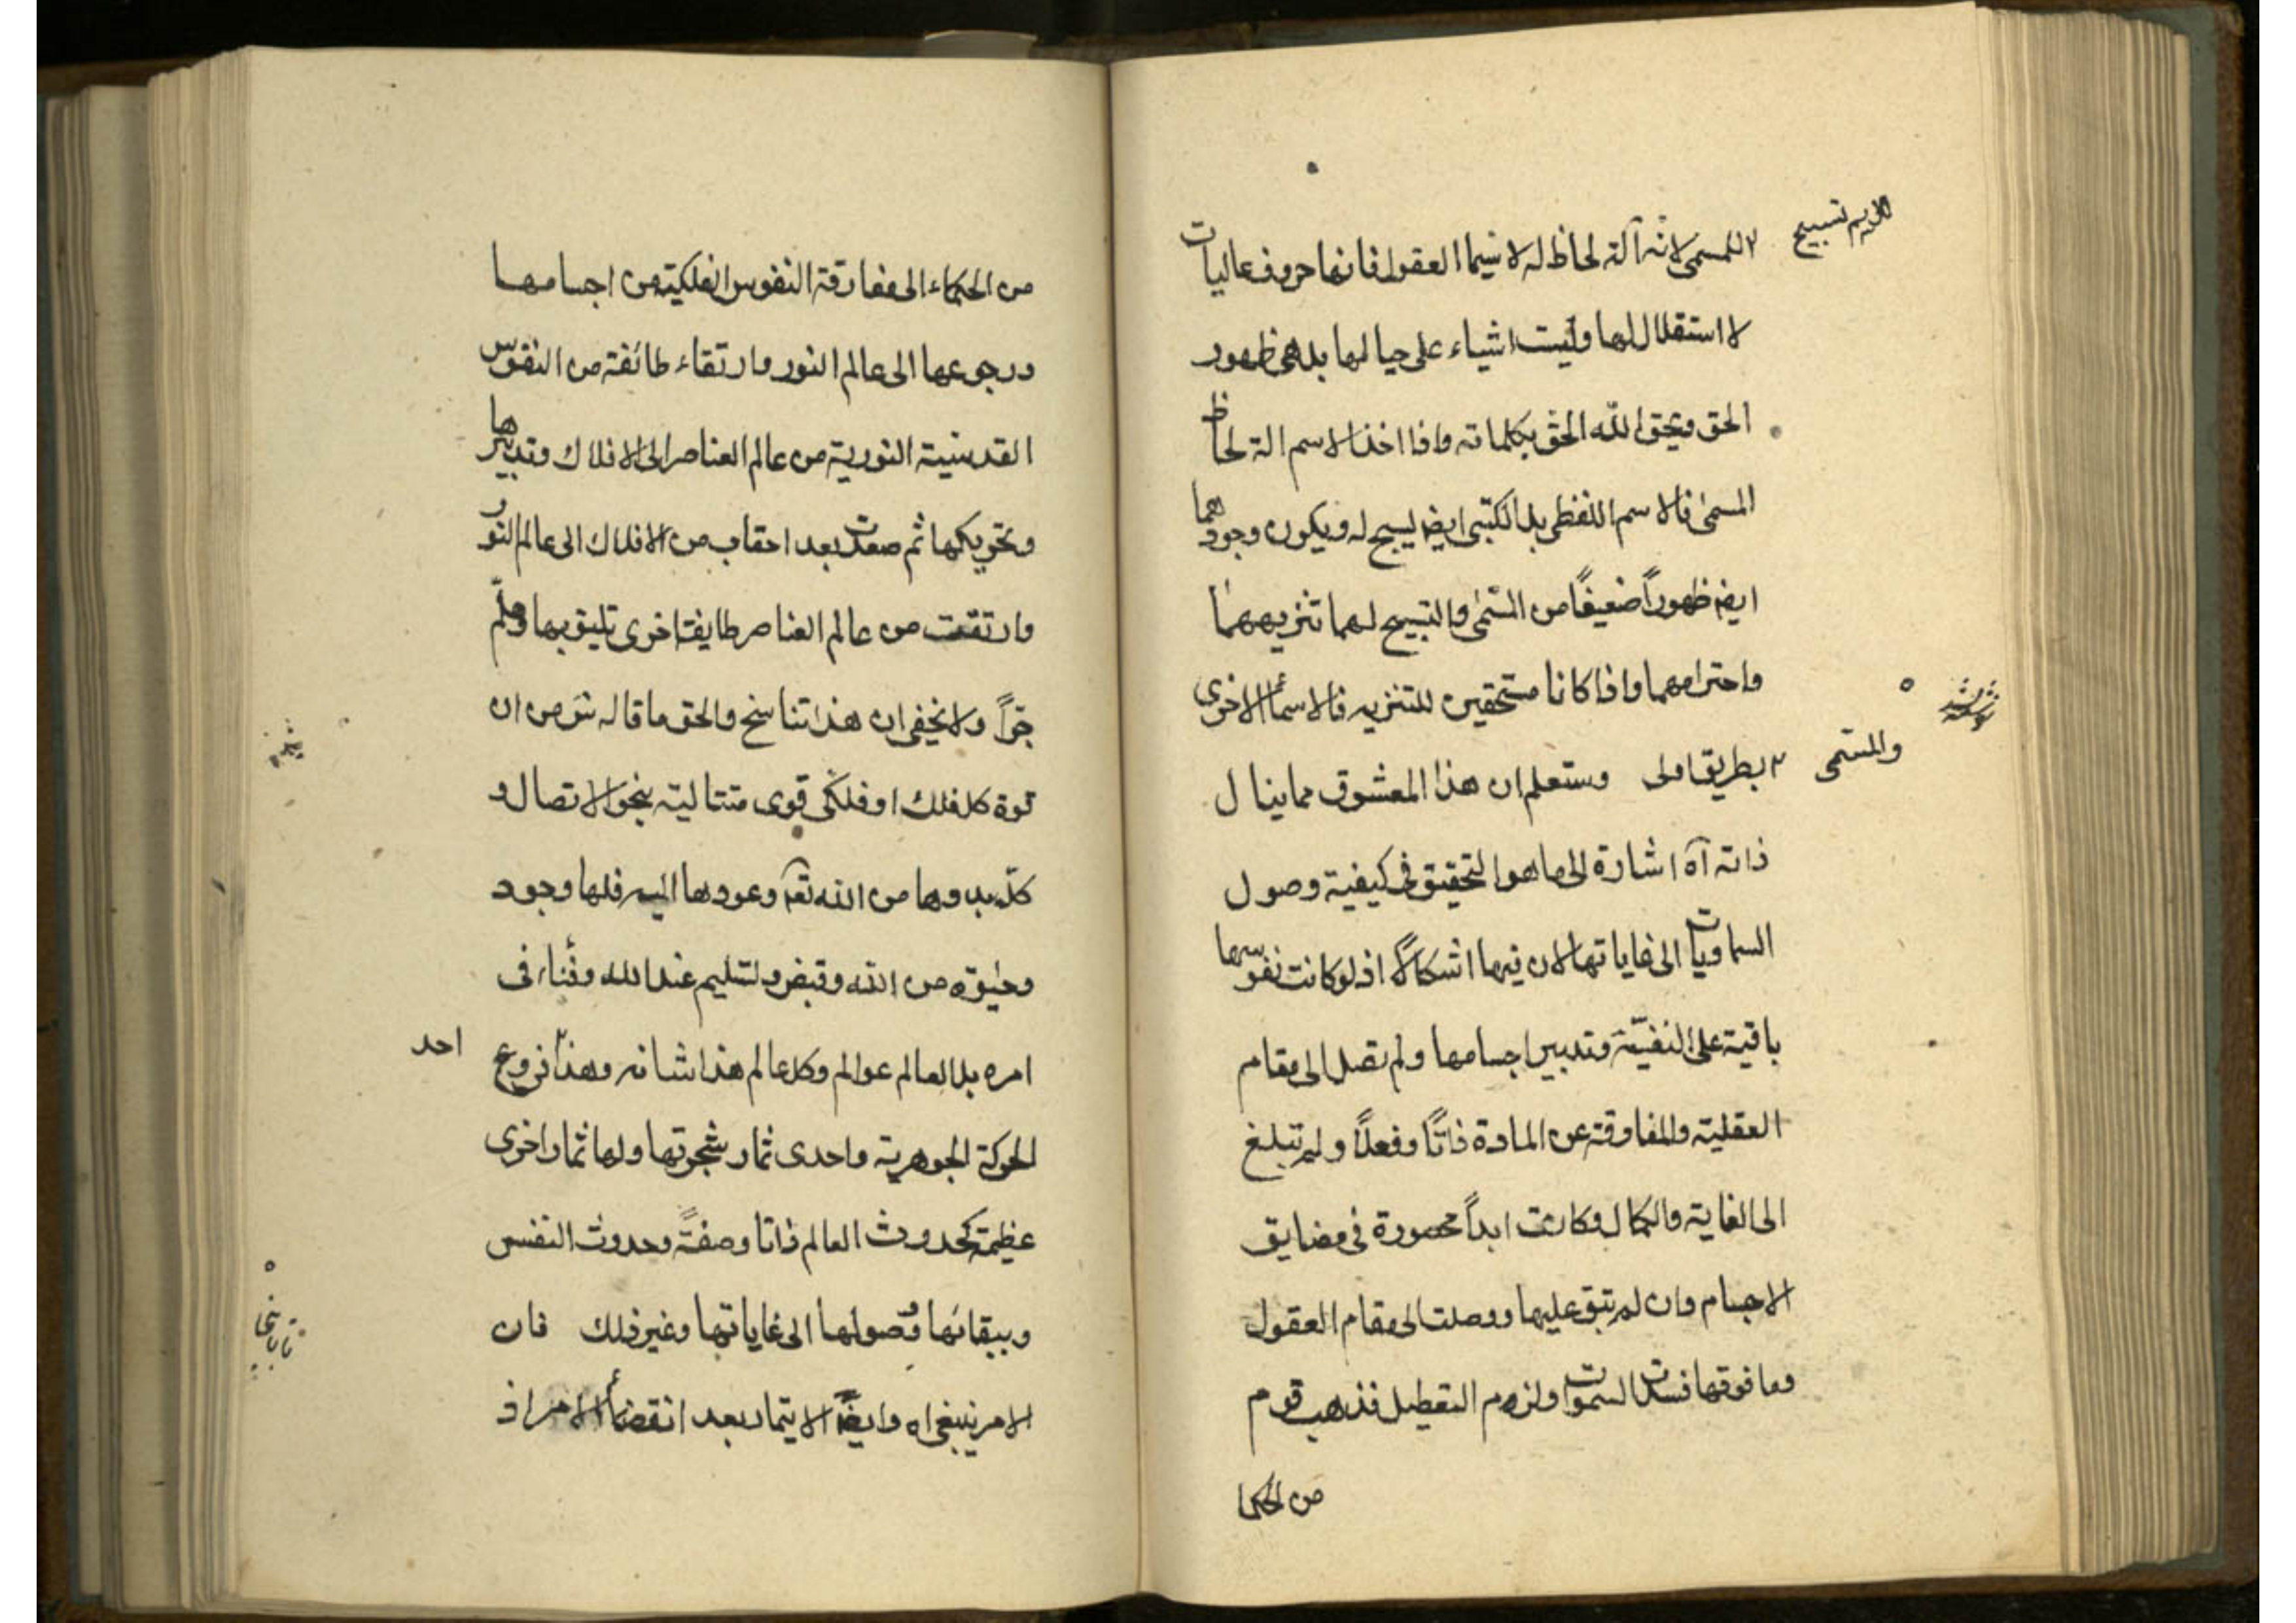 للمسمى لانه آلة لحاظ له لا سيما العقول فانها حروف عاليات
لا استقلال لها وليست اشياء على حيالها بل هى ظهور
الحق ويحق الله الحق بكلماته واذا اخذ الاسم الة لحاظ
المسمى فالاسم اللفظى بل الكتبى ايضا يسبح له ويكون وجودهما
ايضا ظهوراً ضعيفاً من المسمى والتسبيح لهما تنزيههما
واحترامهما واذا كانا مستحقين للتنزيه فالاسماء الاخرى
والمسمى
بطريق اولى وستعلم ان هذا المعشوق مما ينال
ذاته آه اشارة الى ما هو التحقيق فى كيفية وصول
السماويات الى غاياتها لان فيها اشكالاً اذ لو كانت نفوسها
باقية على النفسية وتدبير اجسامها ولم تصل الى مقام
العقلية والمفارقة عن المادة ذاتاً وفعلاً ولم تبلغ
الى الغاية والكمال وكانت ابداً محصورة فى مضايق
الاجسام وان لم تبق عليها ووصلت الى مقام العقول
وما فوقها فسدت السموات ولزم التعطيل فذهب قوم
من الحكما
من الحكماء الى مفارقة النفوس الفلكية من اجسامها
ورجوعها الى عالم النور وارتقاء طائفة من النفوس
القدسية النورية من عالم العناصر الى الافلاك وتدبيرها
وتحريكها ثم صعدت بعد احقاب من الافلاك الى عالم النور
وارتقت من عالم العناصر طايفة اخرى تليق بها وهلم
جراً ولا يخفى ان هذا تناسخ والحق ما قاله من ان
قوة كل فلك او فلكى قوى متتالية بنحو الاتصال و
كل بدوها من الله تعه وعودها اليه فلها وجود
وحيوة من الله وقبض وتسليم عند الله وفناء فى
امره بل العالم عوالم وكل عالم هذا شانه وهذا فروع
احد
الحركة الجوهرية واحدى ثمار شجرتها ولها ثمار اخرى
عظيمة كحدوث العالم ذاتا وصفةً وحدوث النفس
وببقائها وصولها الى غاياتها وغير ذلك فان
الامر ينبغى اه وايضاً الايتمار بعد انقضاء الامر اذ